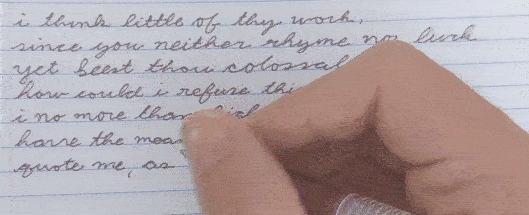 i think little of thy work,
since you neither rhyme nor
yet beest thou colossal
how could i refuse
i no more than
have the
quote me, as